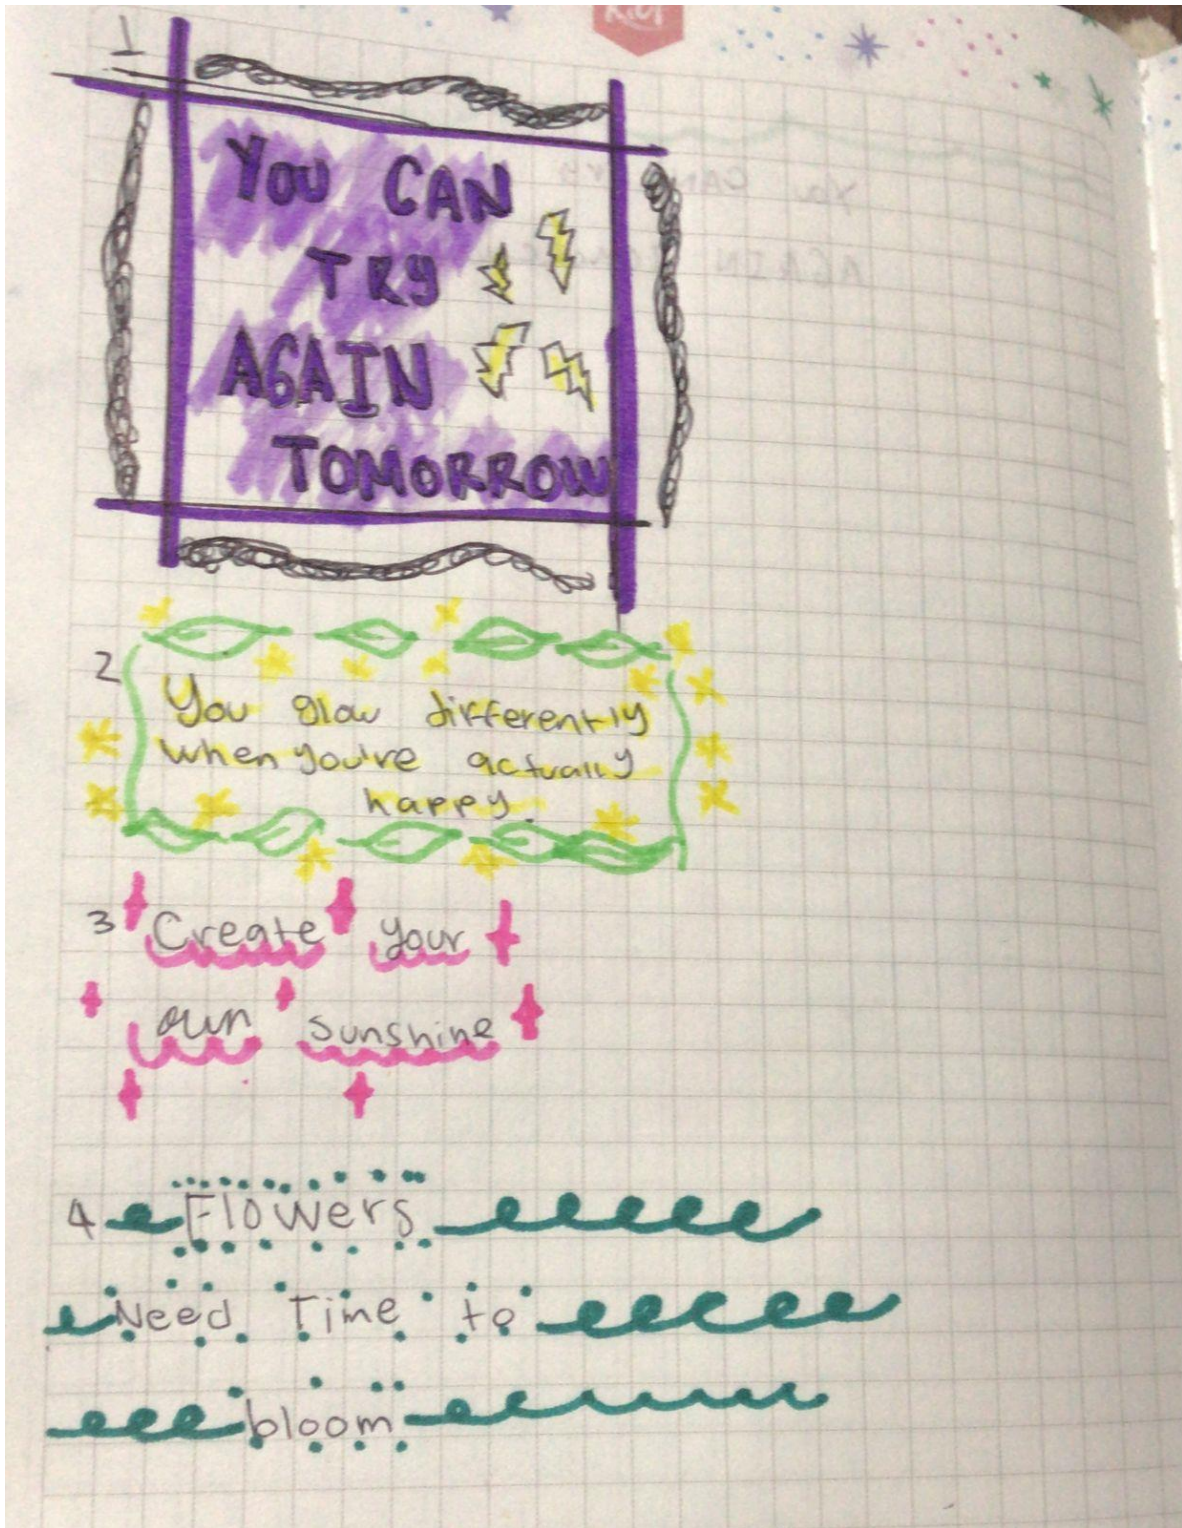 1
YOU CAN
TRY
AGAIN
TOMORROW
2
You glow differently
when you're actually
happy.
3 Create your
own sunshine
4 Flowers
Need Time to
bloom